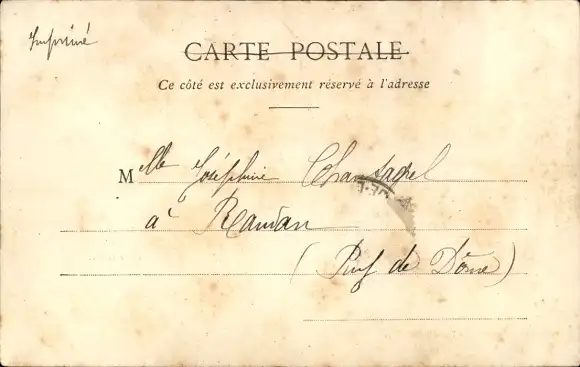 Imprimé
CARTE POSTALE
Ce côté est exclusivement réservé à l'adresse
Melle Joséphine Chantagrel
à Randan
(Puy de Dôme)